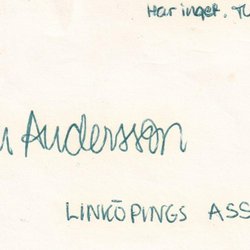 Har inget. TU
n Andersson
LINKÖPINGS ASS